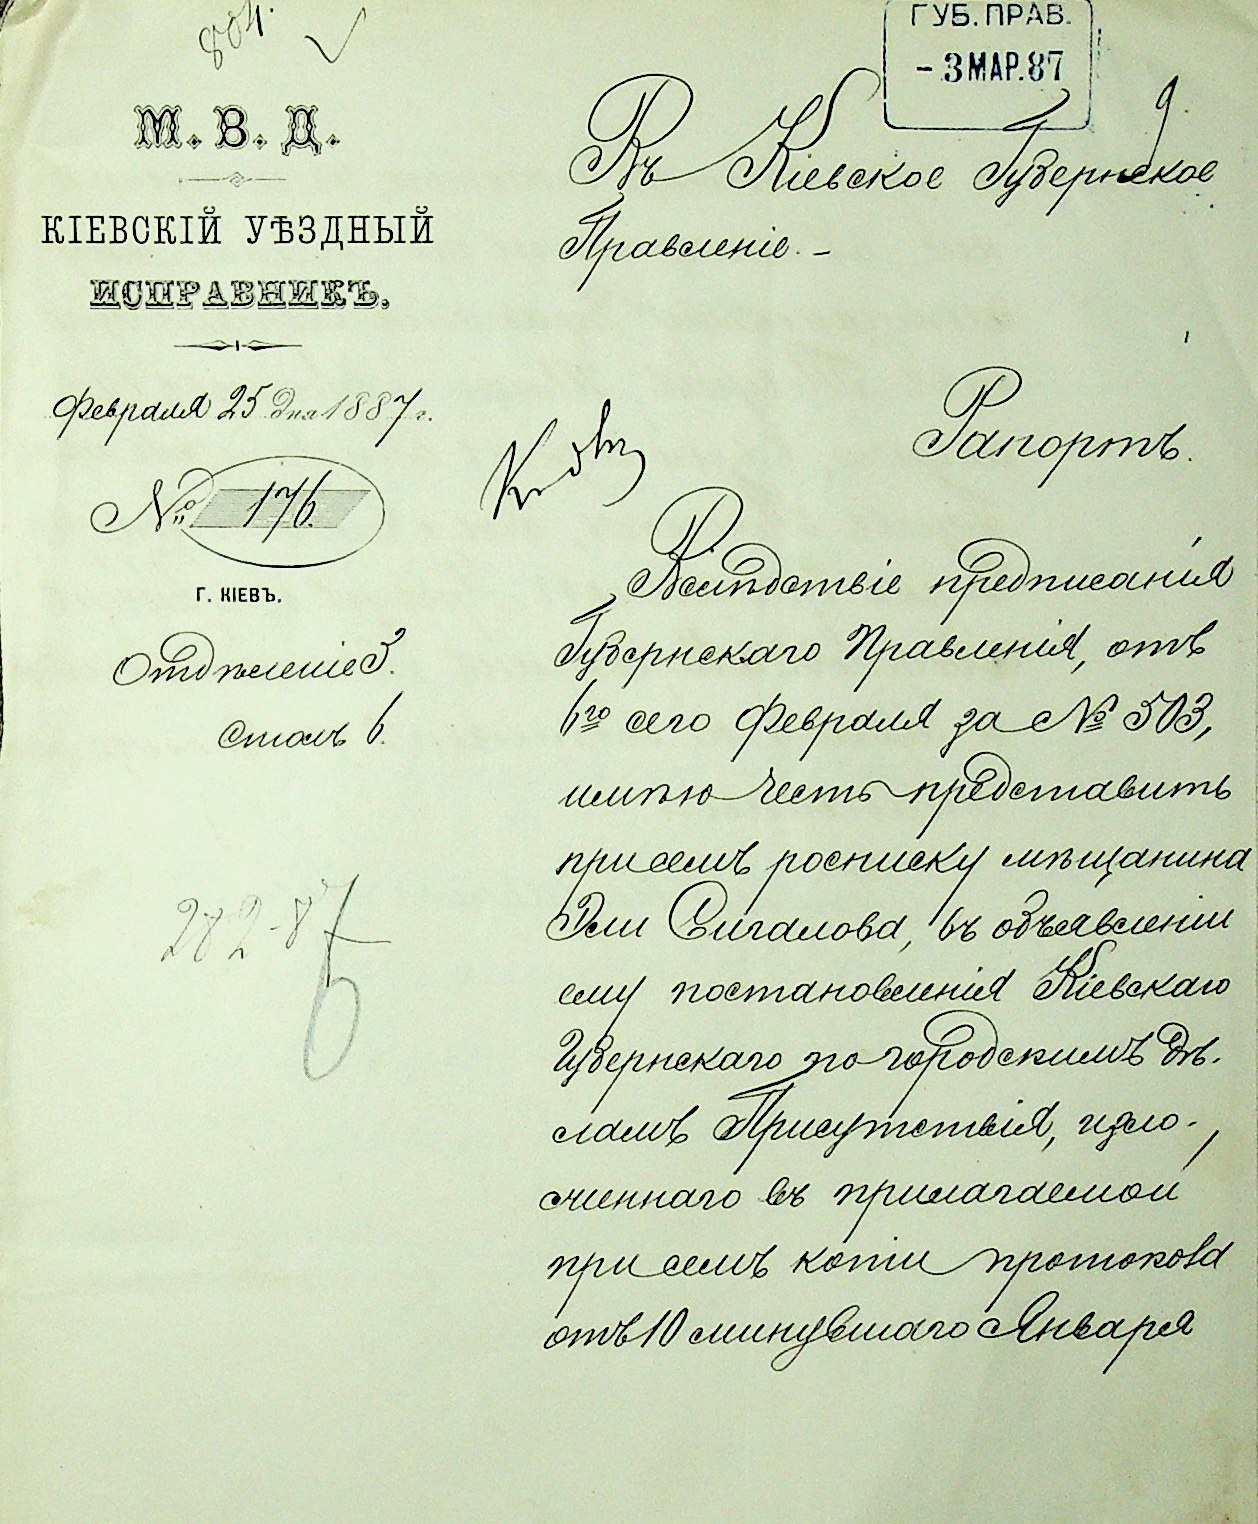 804.
ГУБ. ПРАВ.
- 3 МАР. 87
9
М. В. Д.
КІЕВСКІЙ УѢЗДНЫЙ
ИСПРАВНИКЪ.
Февраля 25 дня 1887 г.
№ 176.
Г. КІЕВЪ.
Отдѣленіе 3.
Столъ 6.
282-87
6
Въ Кіевское Губернское
Правленіе. -
Рапортъ.
Вслѣдствіе предписанія
Губернскаго Правленія, отъ
6го сего Февраля за № 503,
имѣю честь представить
при семъ росписку мѣщанина
Эли Сигалова, въ объявленіи
ему постановленія Кіевскаго
Губернскаго по городскимъ дѣ-
ламъ Присутствія, изло-
женнаго въ прилагаемой
при семъ копіи протокола
отъ 10 минувшаго Января